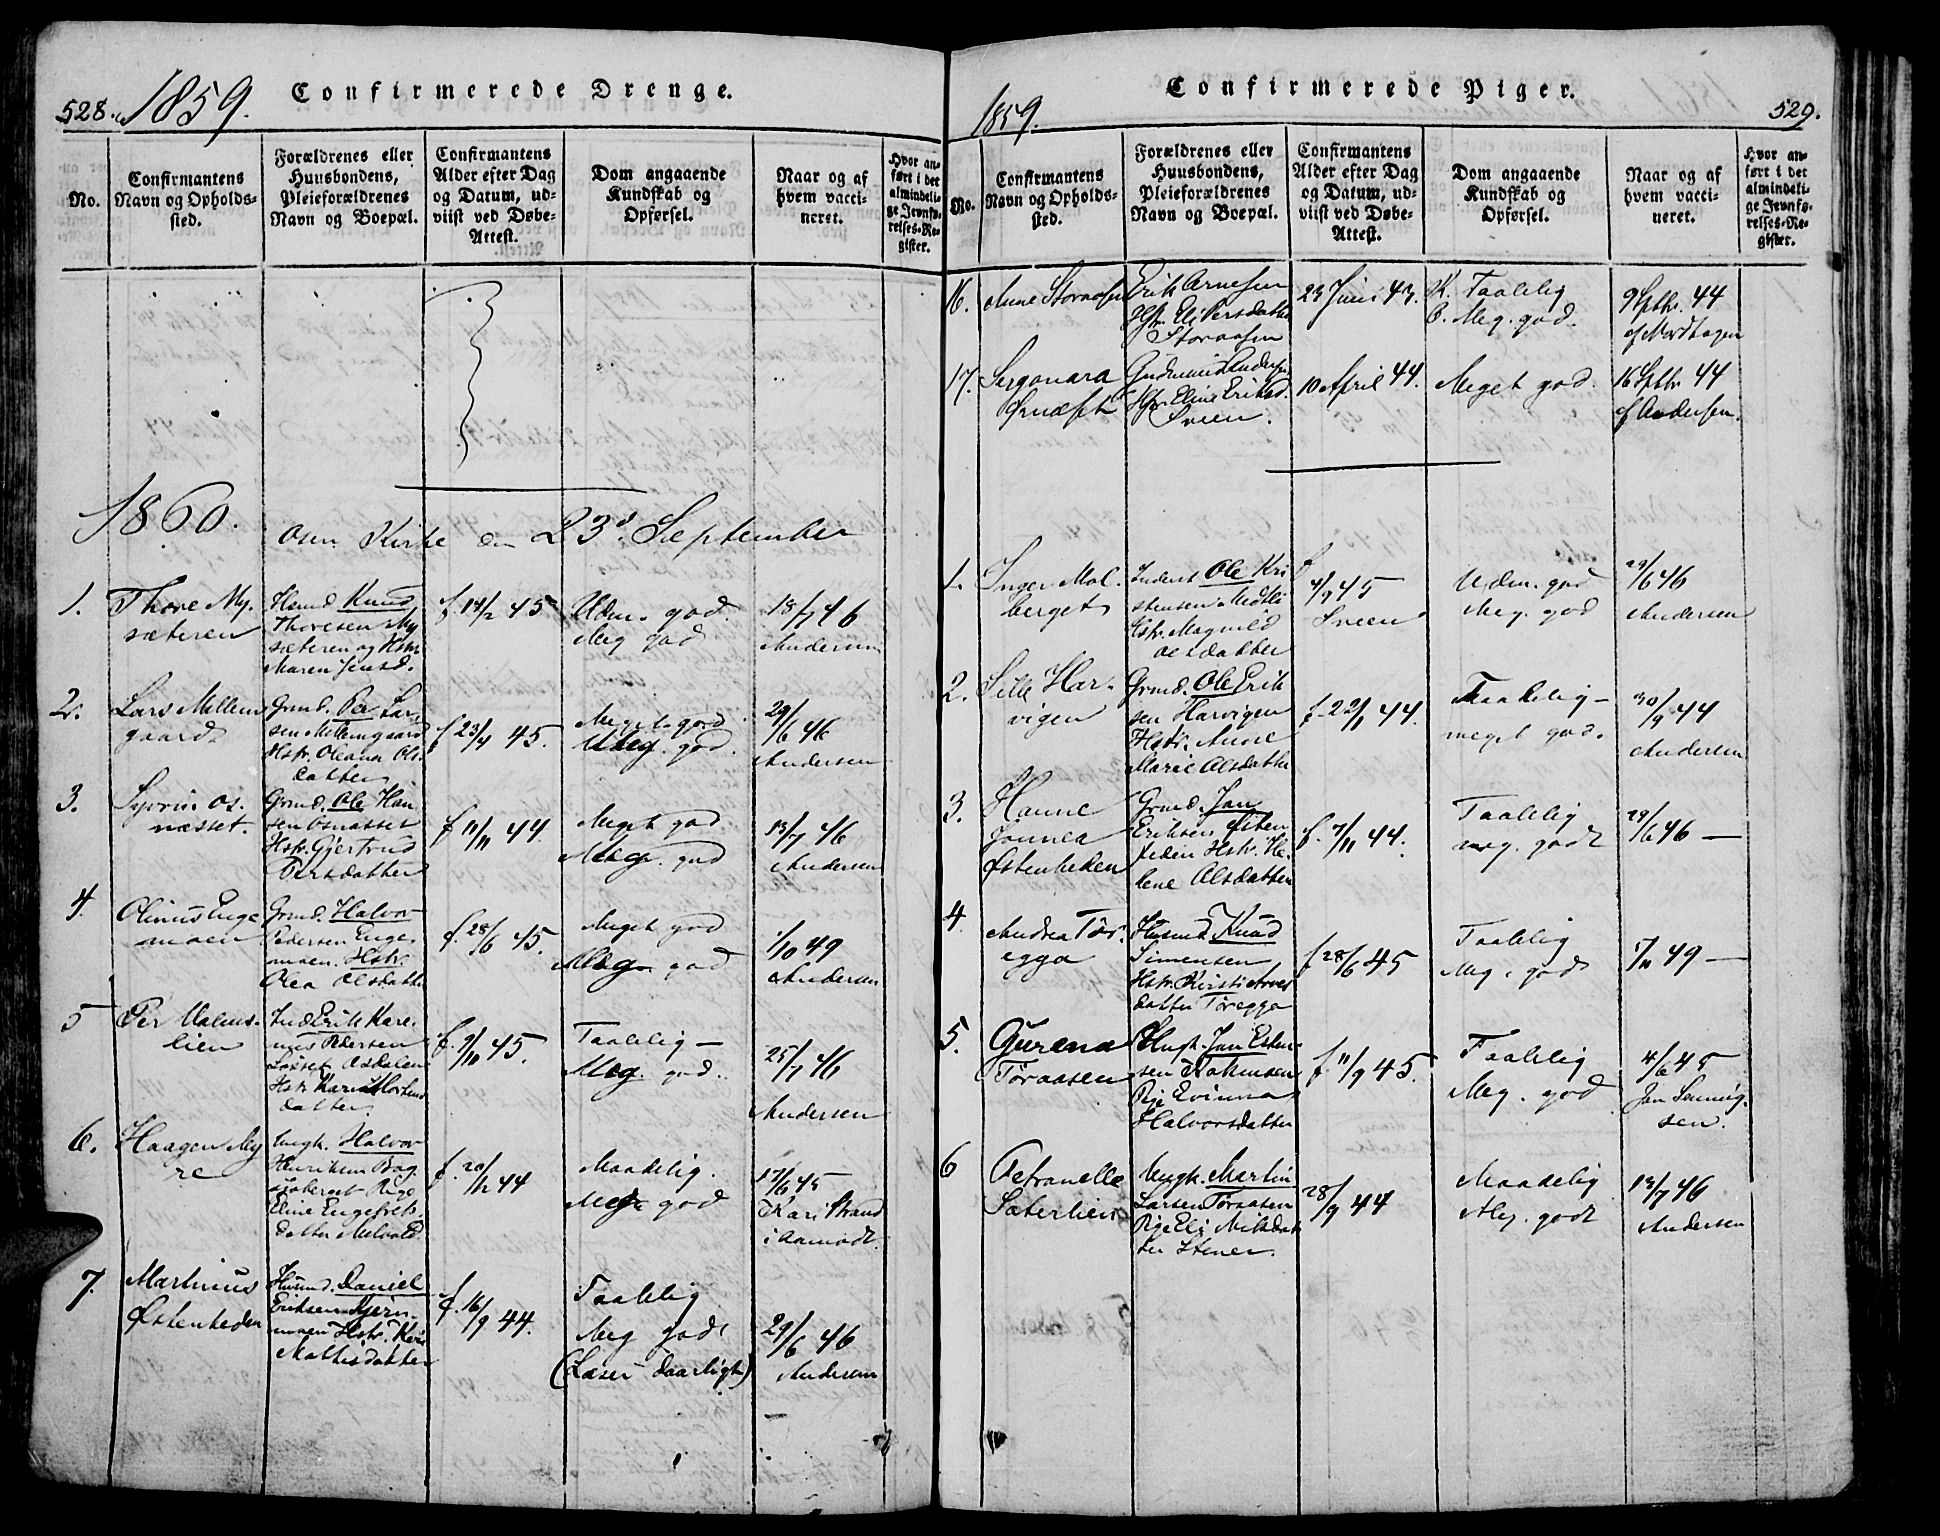 528. 1859. Confirmerede Drenge.
No.
Confirmantens
Navn og Opholds-
sted.
Forældrenes eller
Huusbondens,
Pleieforældrenes
Navn og Boepæl.
Confirmantens
Alder efter Dag
og Datum, ud-
viist ved Døbe-
Attest.
Dom angaaende
Kundskab og
Opførsel.
Naar og af
hvem vacci-
neret.
Hvor an-
ført i det
almindeli-
ge Jevnfø-
relses-Re-
gister.
1860.
Osen Kirke den 23d. September
1.
Thore My-
sæteren
Huusmd. Knud
Thoresen My
sæteren og Hstr.
Maren Jensd.
f. 14/2 45
Udm. god
Meg god
18/7 46
Andersen
2.
Lars Mellem
gaard
Grmd. Per Lar-
sen Mellemgaard
Hstr. Oleana Ols-
datter
f 23/4 45.
Meget god
Meg. god.
29/6 46
Andersen
3.
Syver Os-
næsset.
Grmd. Ole Han-
sen Osnæsset
Hstr. Gjertrud
Persdatter
f 11/11 44.
Meget god
Meg. god
13/7 46
Andersen
4.
Olinus Enge
moen
Grmd. Halvor
Pedersen Enge-
moen. Hstr.
Olea Olsdatter
f. 28/6 45.
Meget god
Meg god
1/10 49
Andersen
5
Per Malms-
lien
Ind Erik Kare-
nus Pedersen
Løsset Osdalen
Hstr Karen Mortens
datter.
f. 9/11 45.
Taalelig —
Meg. god.
25/7 46
Andersen
6.
Haagen My
re
Ungk. Halvor
Henriksen Bag-
sjøberget Pige
Eline Engebrets-
datter Melvold
f. 20/12 44
Maadelig.
Meg god
17/6 45
Kari Strand
i Aamodt.
7.
Martinius
Østenheden
Husmd. Daniel
Eriksen Bjørn-
moen Hstr. Kari
Mattisdatter
f. 16/9 44.
Taalelig
Meg god
(Læser daarligt)
29/6 46
Andersen
1859. Confirmerede Piger. 529.
No.
Confirmantens
Navn og Opholds-
sted.
Forældrenes eller
Huusbondens,
Pleieforældrenes
Navn og Boepæl.
Confirmantens
Alder efter Dag
og Datum, ud-
viist ved Døbe-
Attest.
Dom angaaende
Kundskab og
Opførsel.
Naar og af
hvem vacci-
neret.
Hvor an-
ført i det
almindeli-
ge Jevnfø-
relses-Re-
gister.
16.
Anne Storaasen
Erik Arnesen
Hstr. Eli Persdatter
Storaasen
23 Juni 43.
K. Taalelig
O. Meg. god.
9 Septbr. 44
af Nordhagen
17.
Gudmund Andersen
Hstr. Eline Eriksd.
Sveen.
10 April 44.
Meget god.
16 Septbr 44
af Andersen.
1.
Inger Mol-
berget
Inderst Ole Kri
stensen Midtli
Hstr. Magnild
Olsdatter
f 4/9 45
Sveen
Udm. god
Meg. god
29/6 46
Andersen
2.
Sille Har-
vigen
Grmd. Ole Erik
sen Harvigen
Hstr. Anne
Marie Olsdatter
f. 22/1 44.
Taalelig —
meget god.
30/9 44
Andersen
3.
Hanne
Jonnea
Østenheden
Grmd. Jan
Eriksen Østen
heden Hstr. He-
lene Olsdatter
f. 7/11 44.
Taalelig
meg. godt
29/6 46 —
4
Andrea Tør-
egga
Husmd. Knud
Simensen
Hstr. Kirsti Arnes
datter Tøregga
f 28/6 45
Taalelig
Meg. god
5/11 49 —
5.
Gurena
Tøraasen
Ungk. Jan Esten-
sen
Pige Evinna
Halvorsdatter
f 11/9 45.
Taalelig
Meg. god
4/6 45
Jan Semmig-
sen.
6
Petronelle
Sæterlien
Ungk. Martin
Larsen Tøraasen
Pige Eli Nilsdat
ter Stener.
28/9 44
Maadelig
Meg. godt
13/7 46
Andersen